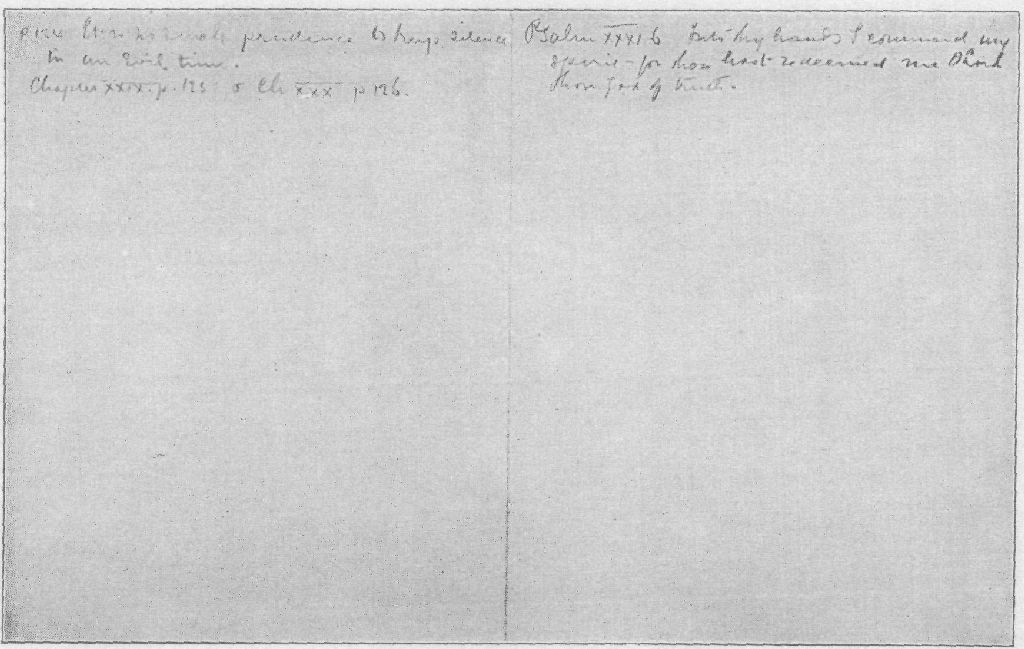 It is no small prudence to keep silence
in an evil time.
Chapter XXIX. p. 125 & Ch XXX p 126.
Psalm XXXI 6 Into thy hands I commend my
spirit - for thou hast redeemed me O Lord
thou God of truth.